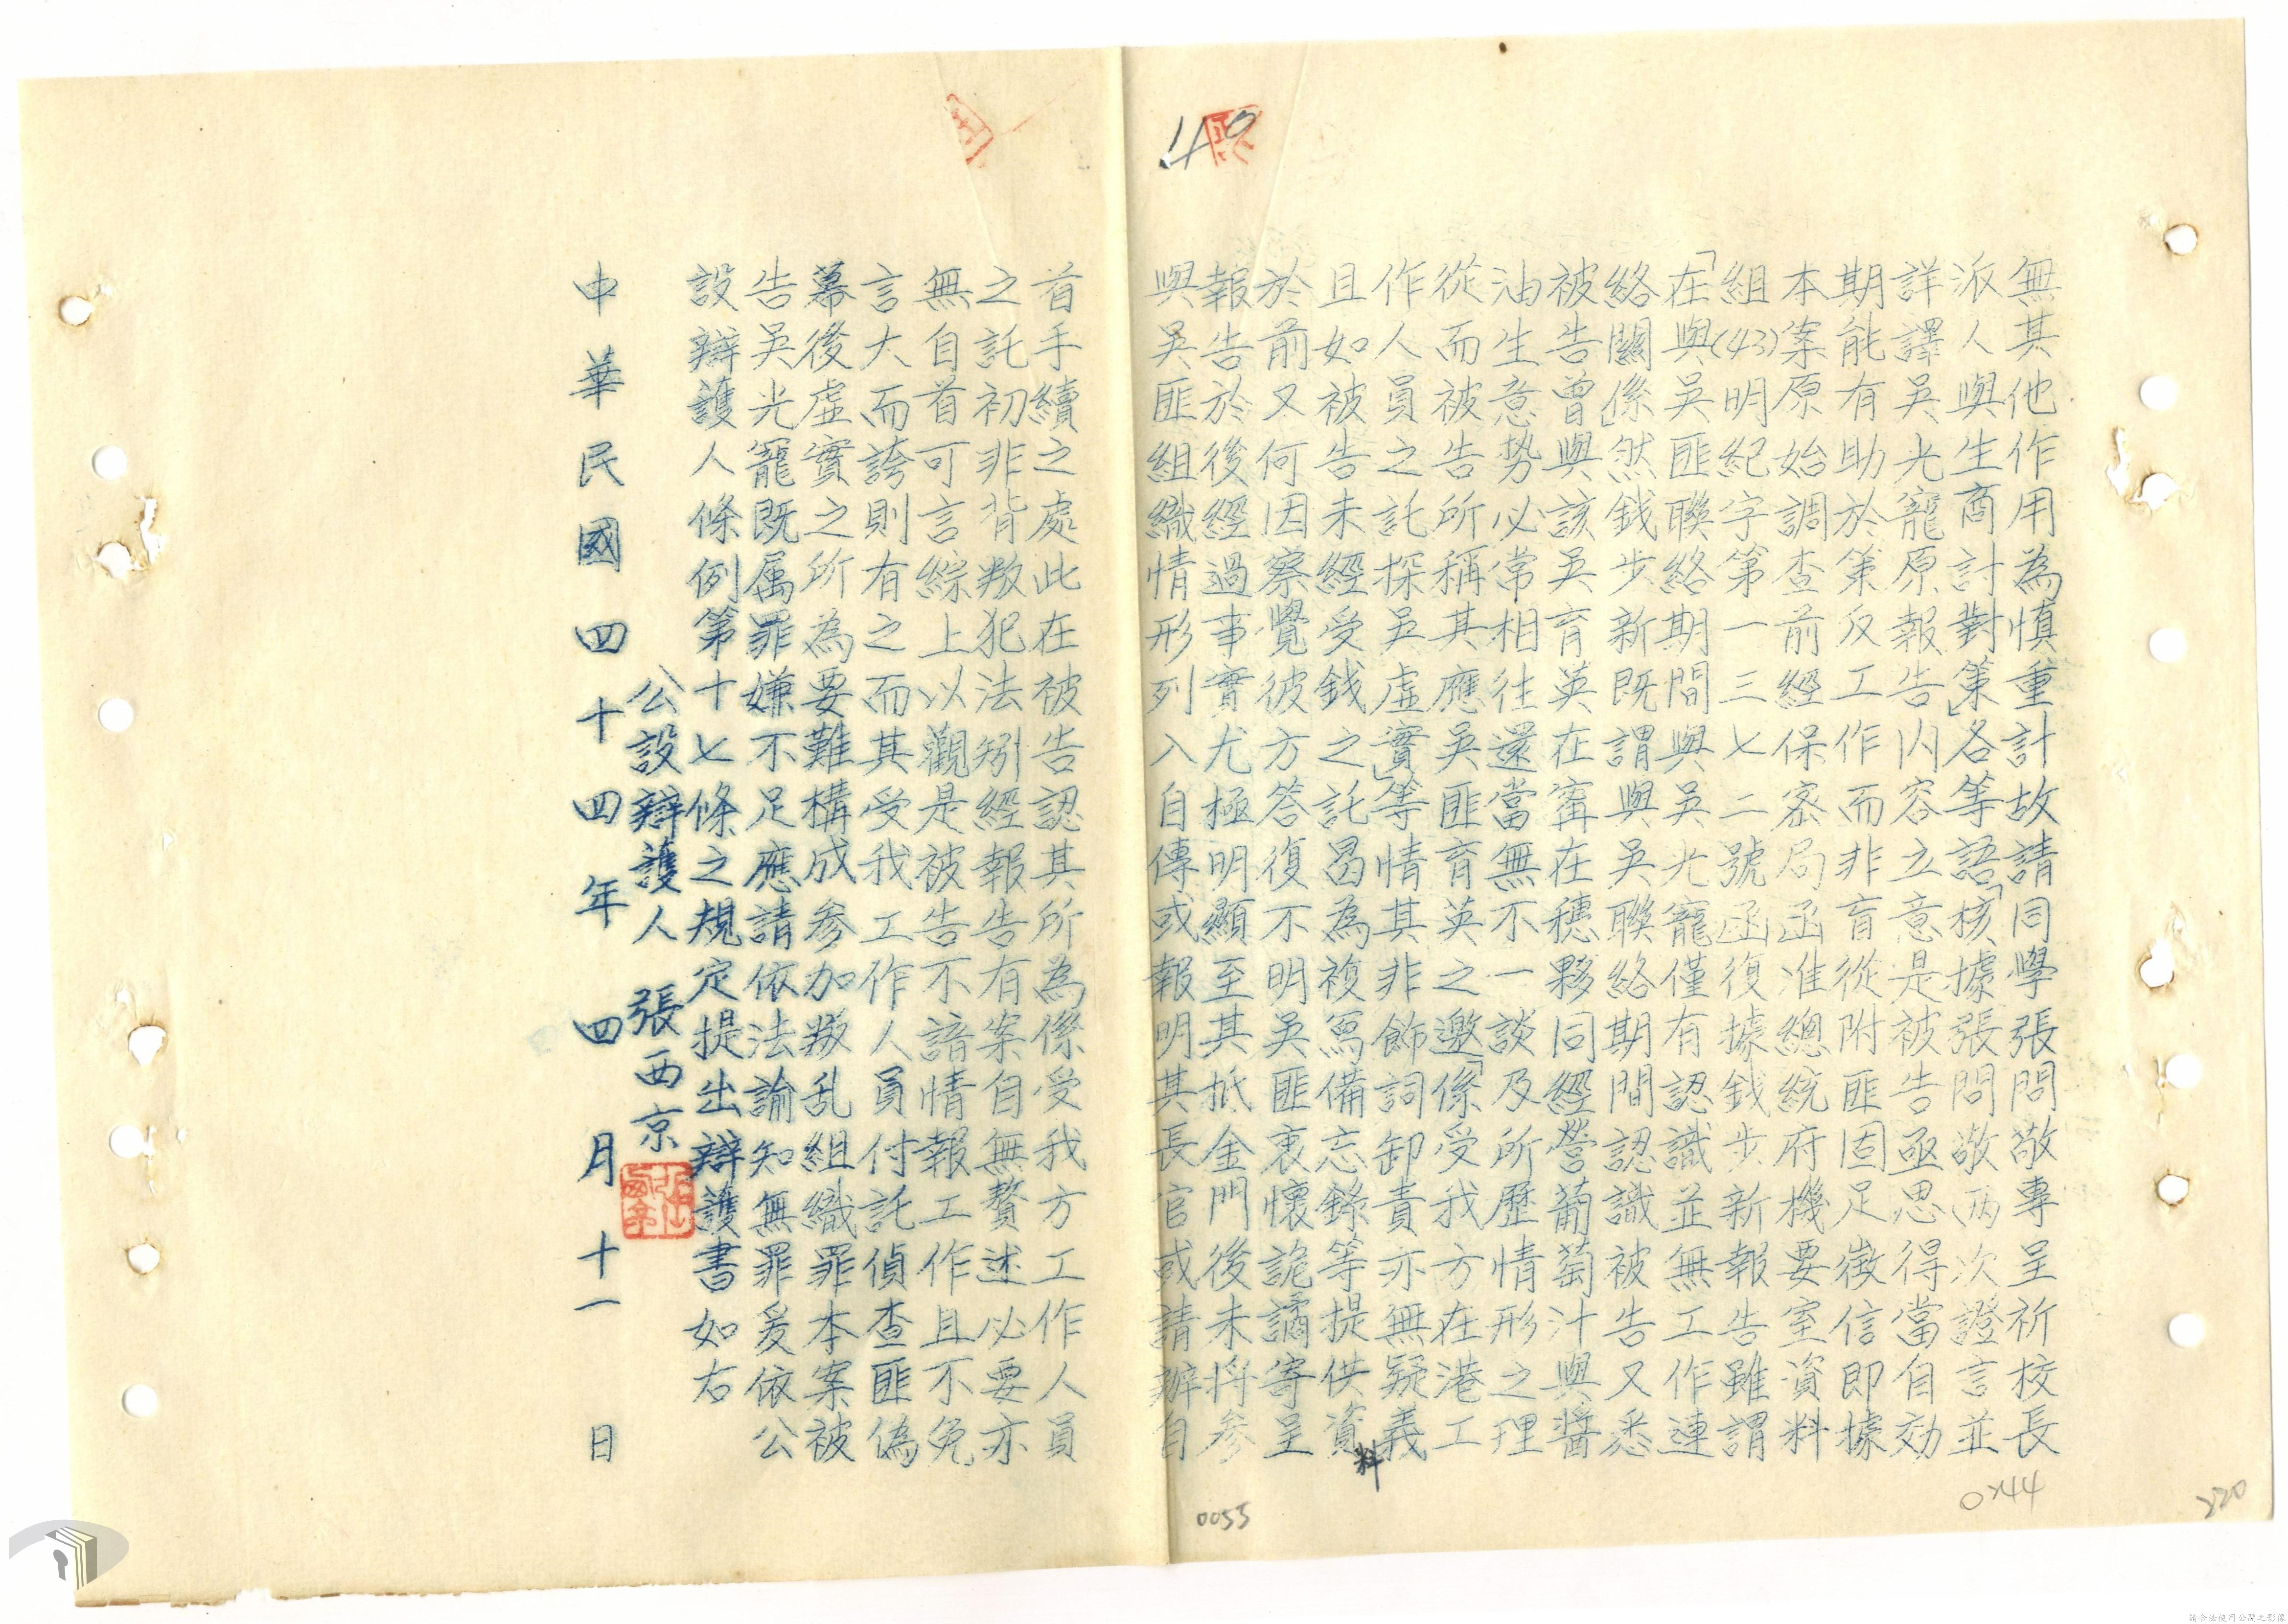 無其他作用為慎重計故請同學張問敬專呈祈校長
派人與生商討對策」各等語「核據張問敬兩次證言並
詳譯吳光寵原報告內容立意是被告亟思得當自効
期能有助於策反工作而非盲從附匪固足徵信即據
本案原始調查前經保密局函准總統府機要室資料
組(43)明紀字第一三七二號函復據錢步新報告雖謂
「在與吳匪聯絡期間與吳光寵僅有認識並無工作連
絡關係」然錢步新既謂與吳聯絡期間認識被告又悉
被告曾與該吳育英在甯在穗夥同經營葡萄汁與醬
油生意勢必常相往還當無不一談及所歷情形之理
從而被告所稱其應吳匪育英之邀「係受我方在港工
作人員之託探吳虛實」等情其非飾詞卸責亦無疑義
且如被告未經受錢之託曷為複寫備忘錄等提供資料
於前又何因察覺彼方答復不明吳匪衷懷詭譎寄呈
報告於後經過事實尤極明顯至其抵金門後未將參
與吳匪組織情形列入自傳或報明其長官或請辦自
首手續之處此在被告認其所為係受我方工作人員
之託初非背叛犯法矧經報告有案自無贅述必要亦
無自首可言綜上以觀是被告不諳情報工作且不免
言大而誇則有之而其受我工作人員付託偵查匪偽
幕後虛實之所為要難構成参加叛乱組織罪本案被
告吳光寵既属罪嫌不足應請依法諭知無罪爰依公
設辯護人條例第十七條之規定提出辯護書如右
公設辯護人 張西京
中華民國四十四年四月十一日
0055
0244
220
請合法使用公開之影像